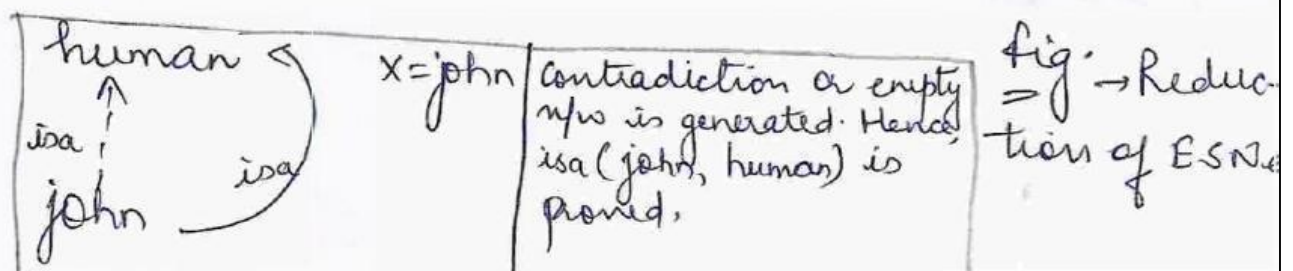 human
isa
isa
john
X=john
contradiction or empty
n/w is generated. Hence,
isa (john, human) is
proved.
fig. → Reduc-
tion of ESN